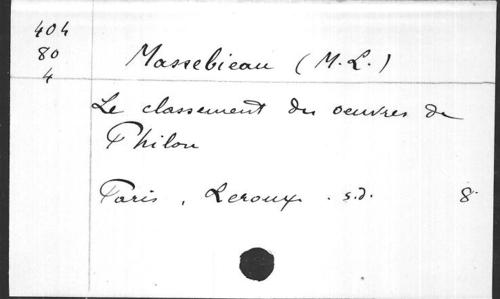 404
80
4
Massebieau (M.L.)
Le classement des oeuvres de
Philon
Paris, Leroux. s.d. 8.